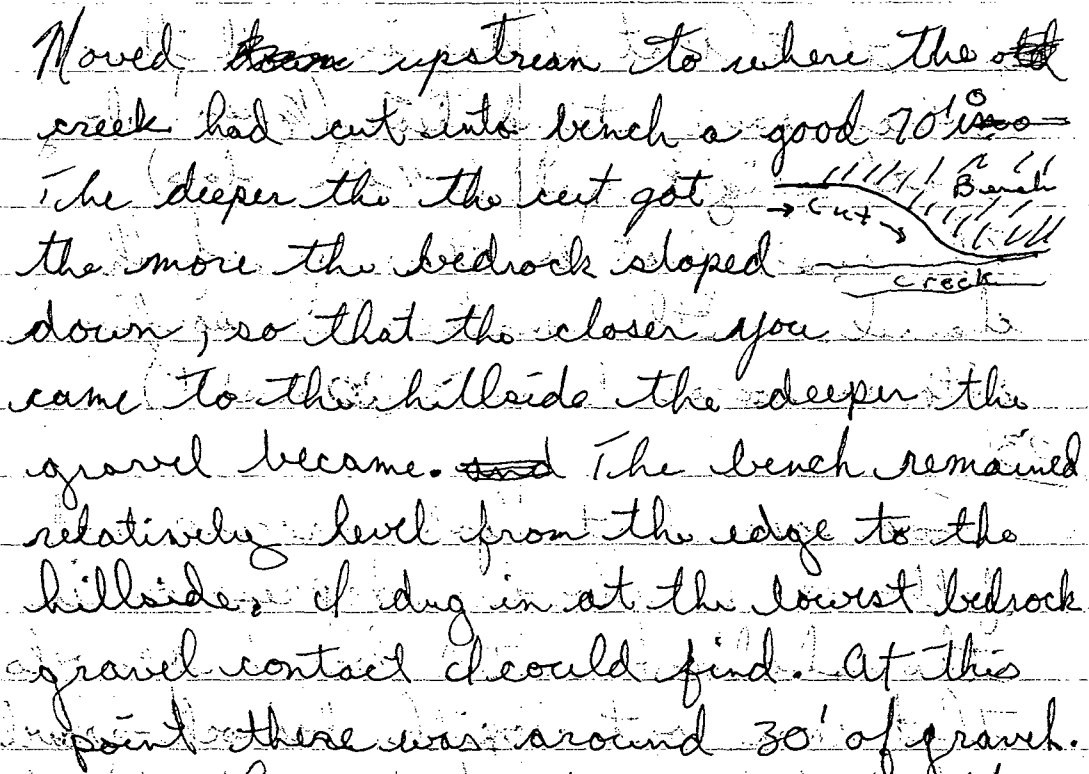 Moved upstream to where the
creek had cut into bench a good 70'
The deeper the the cut got
Bench
→ Cut →
the more the bedrock sloped
creek
down, so that the closer you
came To the hillside the deeper the
gravel became. The bench remained
relatively level from the edge to the
hillside. I dug in at the lowest bedrock
gravel contact I could find. At this
point there was around 30' of gravel.